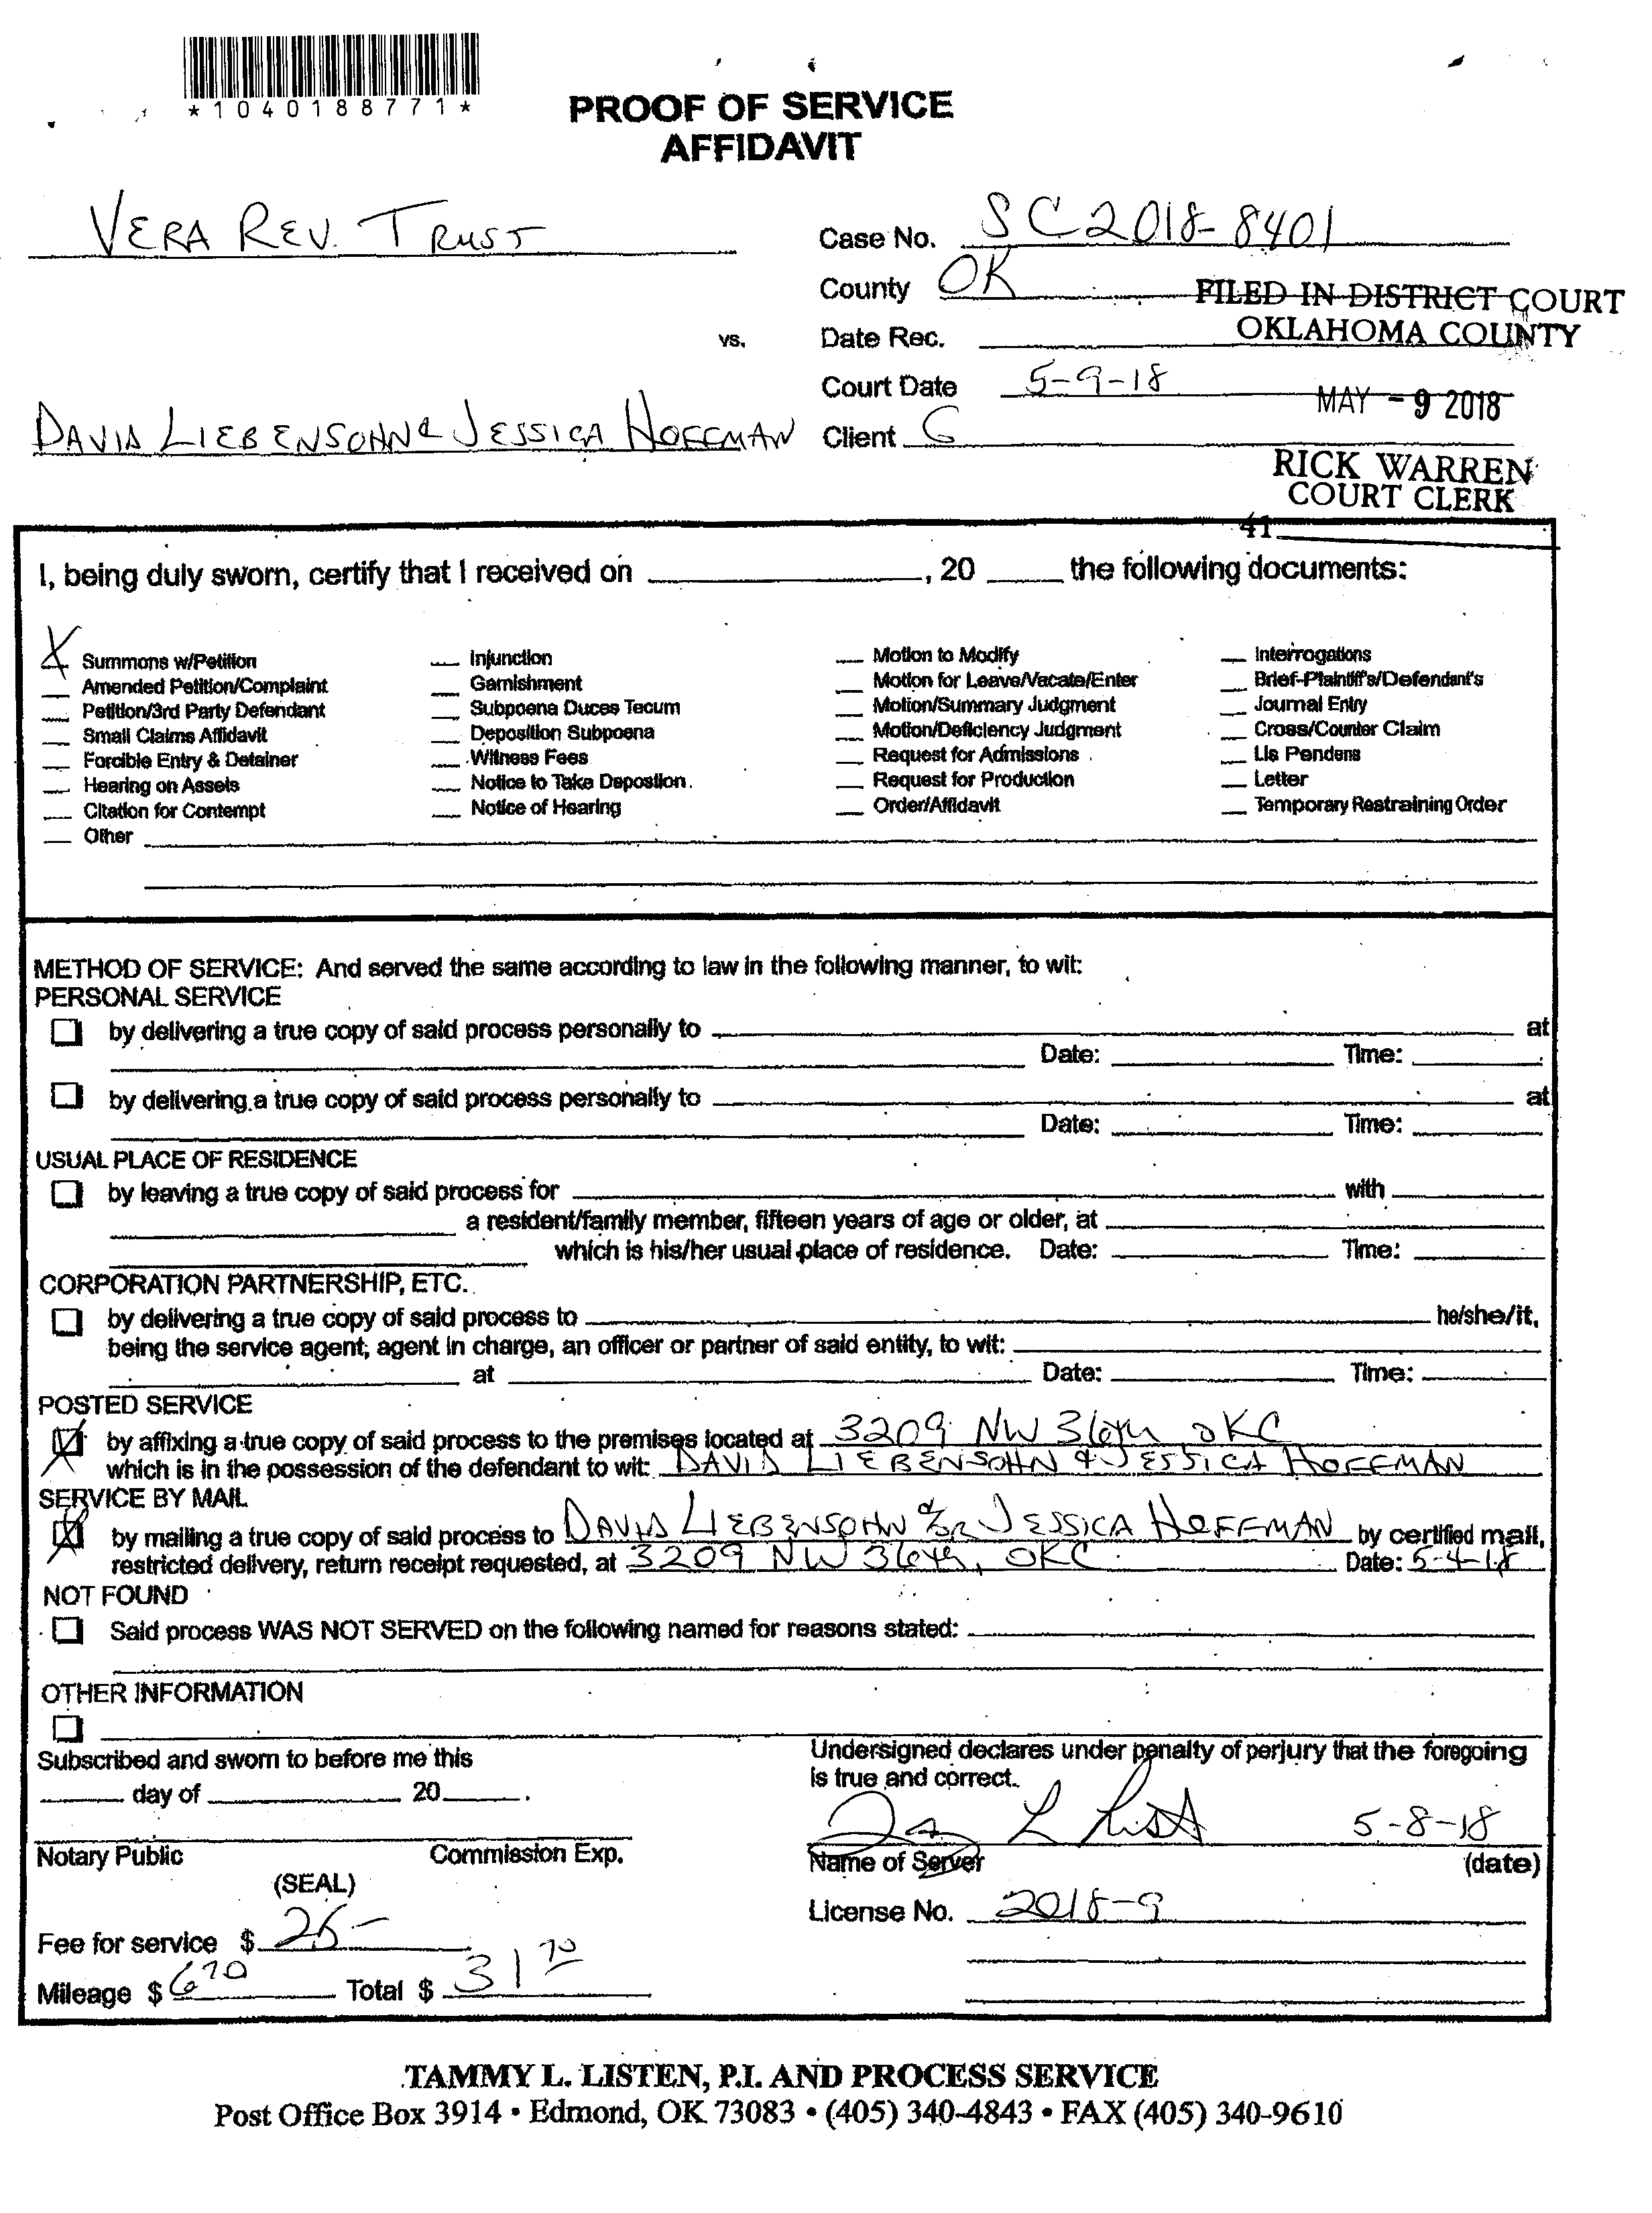 *1040188771*
PROOF OF SERVICE
AFFIDAVIT
VERA REV. TRUST
Case No. SC2018-8401
County OK
FILED IN DISTRICT COURT
OKLAHOMA COUNTY
vs.
Date Rec.
Court Date 5-9-18
MAY - 9 2018
DAVID LIEBENSOHN & JESSICA HOFFMAN
Client G
RICK WARREN
COURT CLERK
41
I, being duly sworn, certify that I received on ____, 20 ____ the following documents:
X Summons w/Petition
__ Amended Petition/Complaint
__ Petition/3rd Party Defendant
__ Small Claims Affidavit
__ Forcible Entry & Detainer
__ Hearing on Assets
__ Citation for Contempt
__ Other
__ Injunction
__ Garnishment
__ Subpoena Duces Tecum
__ Deposition Subpoena
__ Witness Fees
__ Notice to Take Depostion.
__ Notice of Hearing
__ Motion to Modify
__ Motion for Leave/Vacate/Enter
__ Motion/Summary Judgment
__ Motion/Deficiency Judgment
__ Request for Admissions
__ Request for Production
__ Order/Affidavit
__ Interrogations
__ Brief-Plaintiff's/Defendant's
__ Journal Entry
__ Cross/Counter Claim
__ Lis Pendens
__ Letter
__ Temporary Restraining Order
METHOD OF SERVICE: And served the same according to law in the following manner, to wit:
PERSONAL SERVICE
☐ by delivering a true copy of said process personally to ____ at
____ Date: ____ Time: ____
☐ by delivering a true copy of said process personally to ____ at
____ Date: ____ Time: ____
USUAL PLACE OF RESIDENCE
☐ by leaving a true copy of said process for ____ with ____
____ a resident/family member, fifteen years of age or older, at ____
____ which is his/her usual place of residence. Date: ____ Time: ____
CORPORATION PARTNERSHIP, ETC.
☐ by delivering a true copy of said process to ____ he/she/it,
being the service agent, agent in charge, an officer or partner of said entity, to wit: ____
____ at ____ Date: ____ Time: ____
POSTED SERVICE
☒ by affixing a true copy of said process to the premises located at 3209 NW 36th OKC
which is in the possession of the defendant to wit: DAVID LIEBENSOHN & JESSICA HOFFMAN
SERVICE BY MAIL
☒ by mailing a true copy of said process to DAVID LIEBENSOHN &/OR JESSICA HOFFMAN by certified mail,
restricted delivery, return receipt requested, at 3209 NW 36th, OKC Date: 5-4-18
NOT FOUND
☐ Said process WAS NOT SERVED on the following named for reasons stated: ____
OTHER INFORMATION
☐ ____
Subscribed and sworn to before me this
____ day of ____ 20____.
Undersigned declares under penalty of perjury that the foregoing
is true and correct.
5-8-18
Notary Public Commission Exp.
Name of Server (date)
(SEAL)
License No. 2018-9
Fee for service $ 25-
Mileage $ 6 70 Total $ 31 70
TAMMY L. LISTEN, P.I. AND PROCESS SERVICE
Post Office Box 3914 • Edmond, OK 73083 • (405) 340-4843 • FAX (405) 340-9610